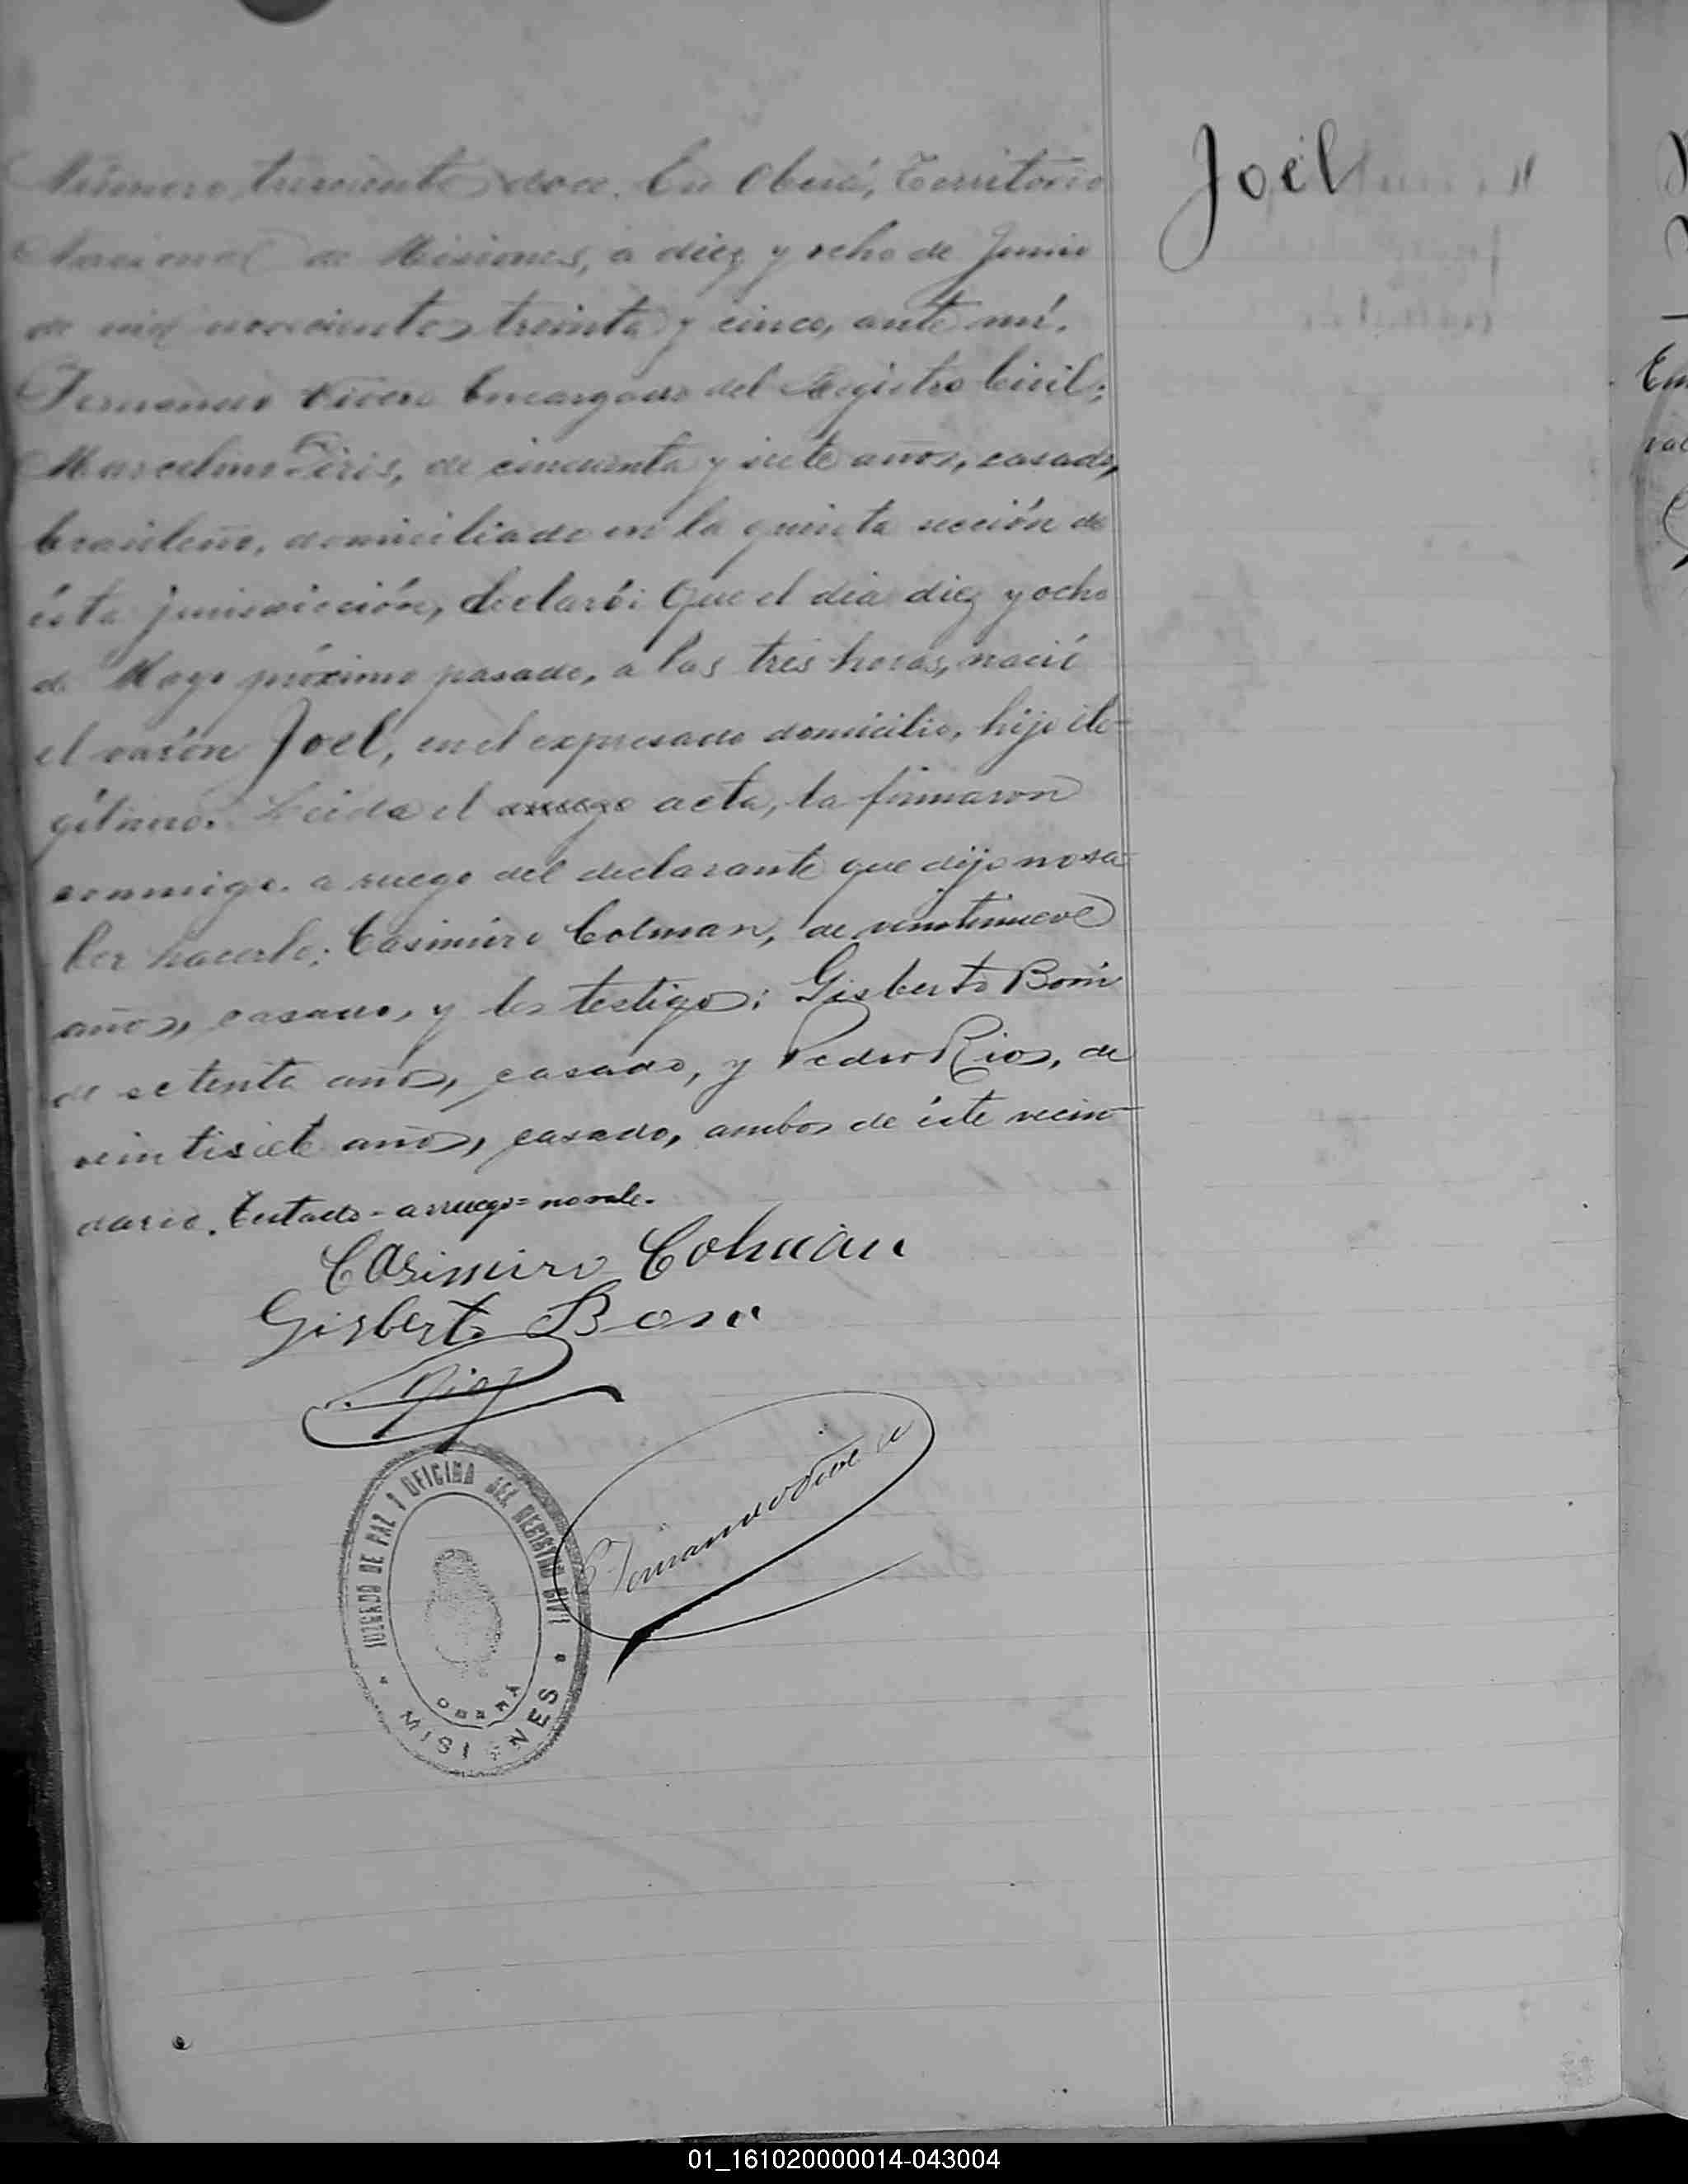 Joel
Número trescientos doce. En Oberá, Territorio
Nacional de Misiones, a diez y ocho de Junio
de mil novecientos treinta y cinco, ante mí.
Fernando Vivero Encargado del Registro Civil;
Marcelino Piris, de cincuenta y siete años, casado,
brasileño, domiciliado en la quinta sección de
ésta jurisdicción, declaró: Que el día diez y ocho
de Mayo próximo pasado, a las tres horas, nació
el varón Joel, en el expresado domicilio, hijo ile-
gítimo. Leída el acta, la firmaron
conmigo. a ruego del declarante que dijo no sa-
ber hacerlo; Casimiro Colman, de veintinueve
años, casado, y los testigos; Gisberto Boni
de setenta años, casado, y Pedro Rios, de
veintisiete años, casado, ambos de éste vecin-
dario. Testado - a ruego = no vale.
Casimiro Colman
Gisberto Boni
Rios
Fernando
JUZGADO DE PAZ Y OFICINA DEL REGISTRO CIVIL
OBERÁ
MISIONES
01_161020000014-043004